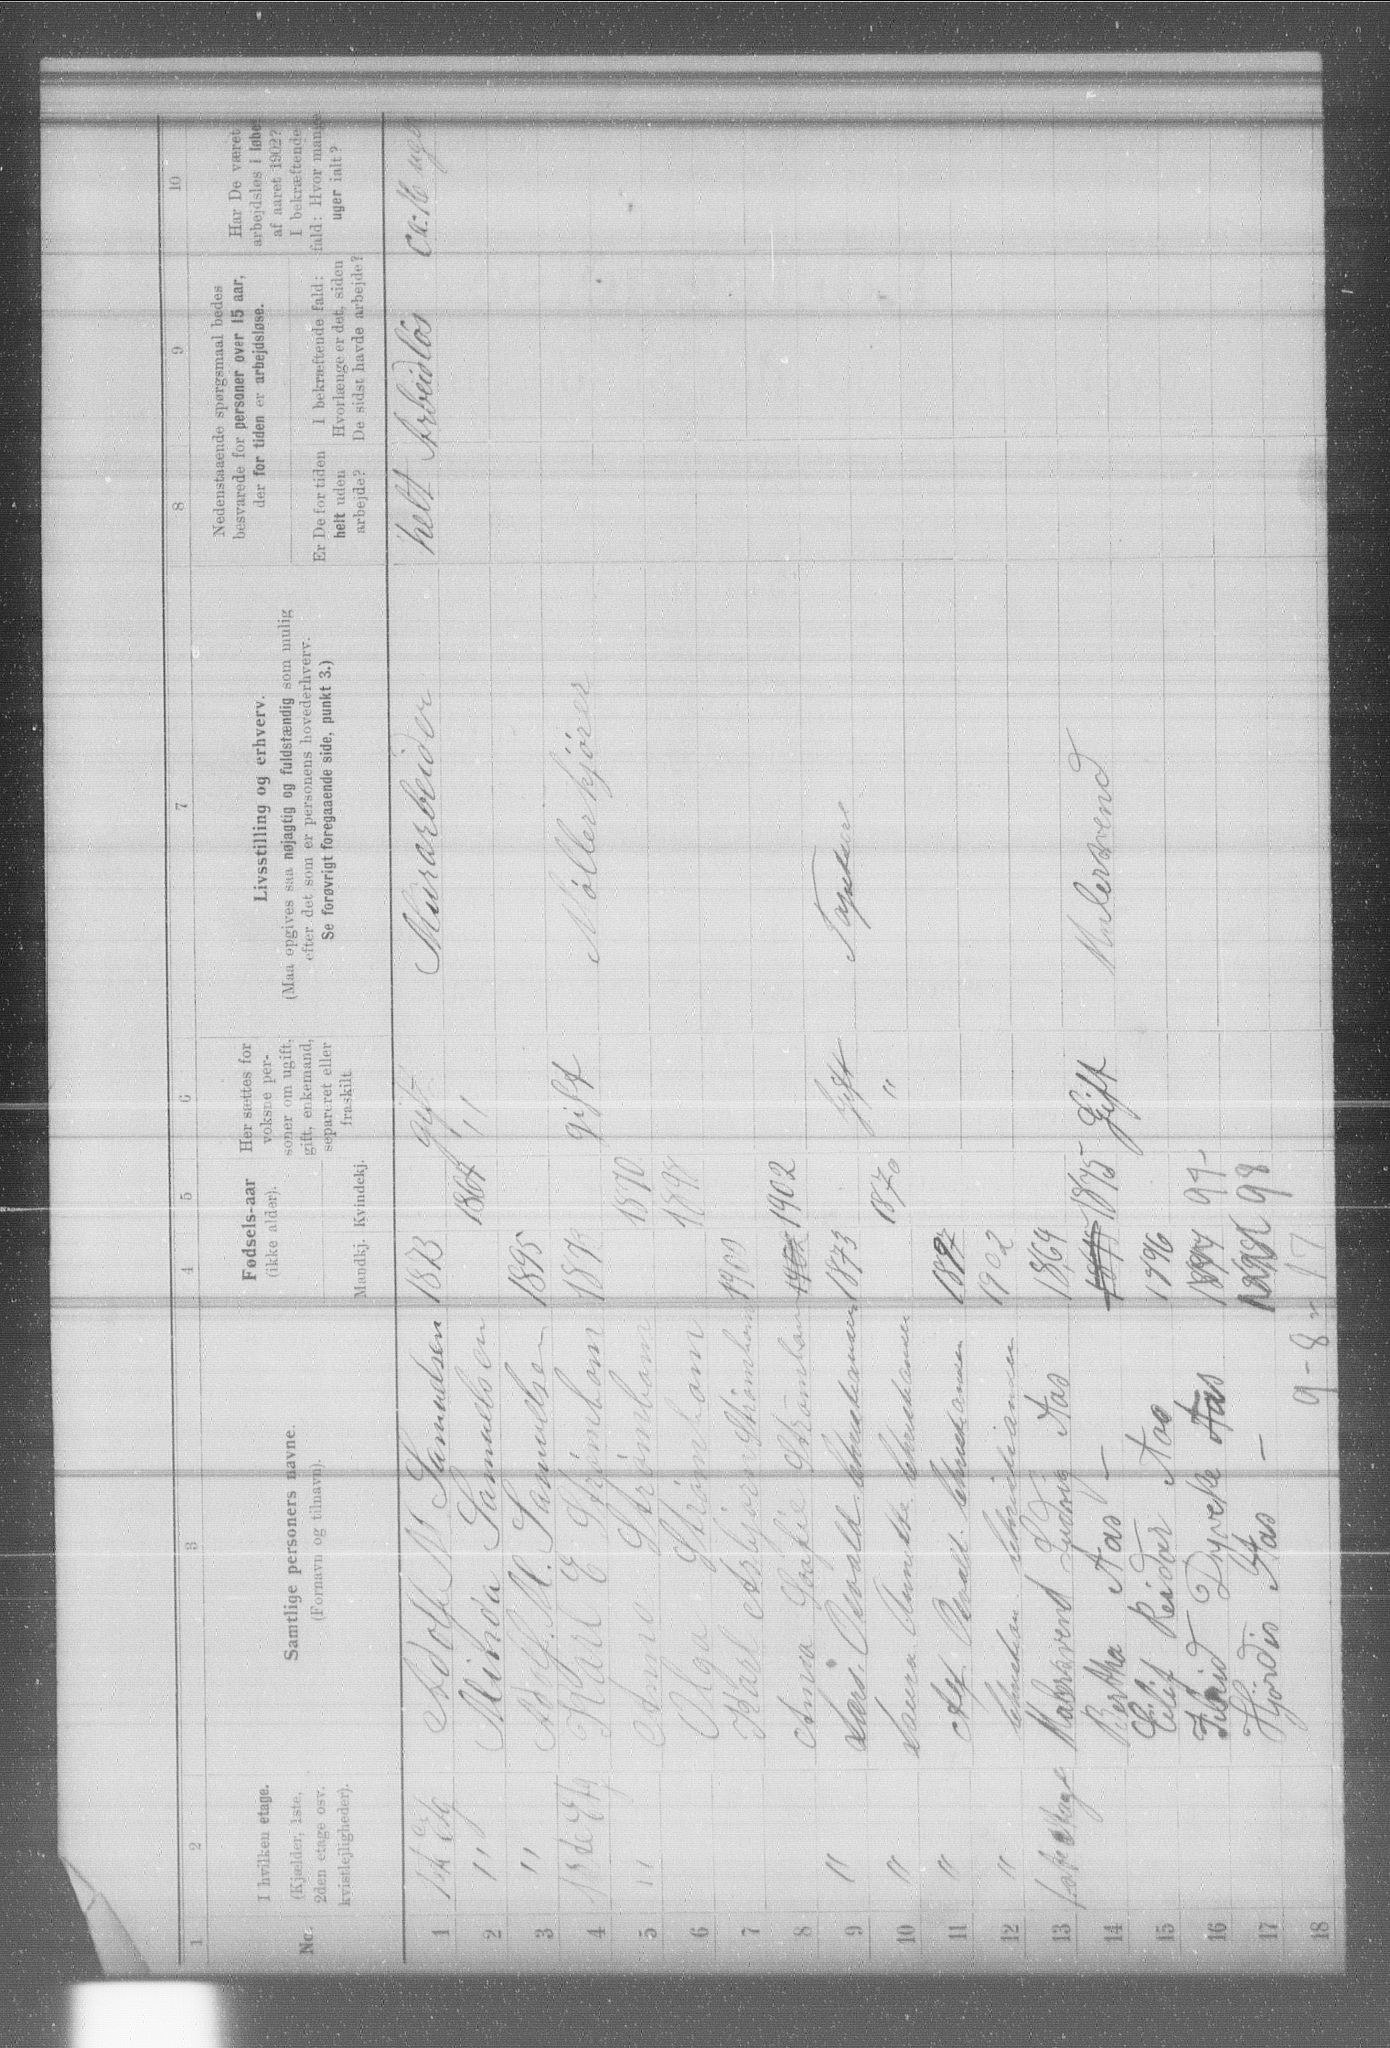 1 2 3 4 5 6 7 8 9 10
Nr.
I hvilken etage.
(Kjælder, 1ste,
2den etage osv.
kvistlejligheder).
Samtlige personers navne.
(Fornavn og tilnavn).
Fødsels-aar
(ikke alder).
Mandkj. Kvindekj.
Her sættes for
voksne per-
soner om ugift,
gift, enkemand,
separeret eller
fraskilt
Livsstilling og erhverv.
(Maa opgives saa nøjagtig og fuldstændig som mulig
efter det som er personens hovederhverv.
Se forøvrigt foregaaende side, punkt 3.)
Nedenstaaende spørgsmaal bedes
besvarede for personer over 15 aar,
der for tiden er arbejdsløse.
Er De for tiden
helt uden
arbejde?
I bekræftende fald:
Hvorlænge er det, siden
De sidst havde arbejde?
Har De været
arbejdsløs i løbet
af aaret 1902?
I bekræftende
fald: Hvor mange
uger ialt?
1 1ste Etg Adolf M Samuelsen 1873 gift Murarbeider helt Arbeidløs Ca: 16 uger
2 " Minda Samuelsen 1864 "
3 " Adolf. M. Samuelsen 1895
4 1ste Etg Karl E Strømbom 1873 gift Møllerkjører
5 " Anna Strømbom 1870
6 Olga Strømbom 1898
7 Karl Asbjørn Strømbom 1900
8 Anna Sofie Strømbom 1902 1902
9 " Lars. Osvald Christiansen 1873 Gift
10 " Laura Annette Christiansen 1870 "
11 " Alf. Osvald. Christiansen 1897
12 " Christian Christiansen 1902
13 Malersvend Ludvig Aas 1864
14 Bertha Aas – 1875 1875 Gift Malersvend
15 Eilif Reidar Aas 1896
16 Dyveke Aas 1897 97
17 Hjørdis Aas – 98
18
9 – 8 = 17